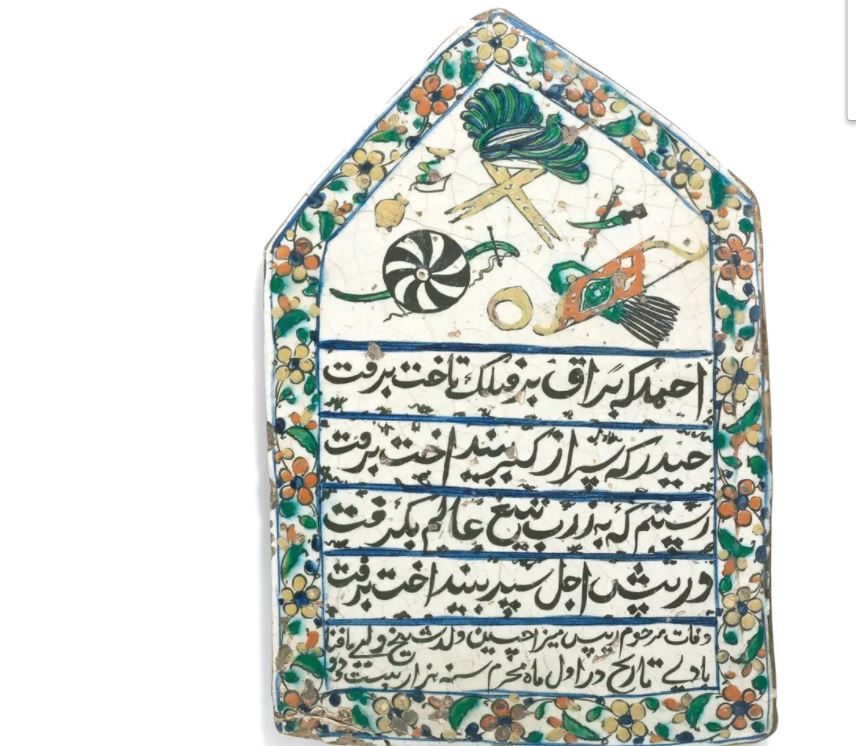 احمد که براق بر فلک تاخت برفت
حیدر که سر از کبر بینداخت برفت
رستم که بزرب تیغ عالم بگرفت
در پیش اجل سپر بینداخت برفت
وفات مرحوم رییس میرزا حسین ولد شیخ ولی
تاریخ در اول ماه محرم سنه هزار بیست و دو